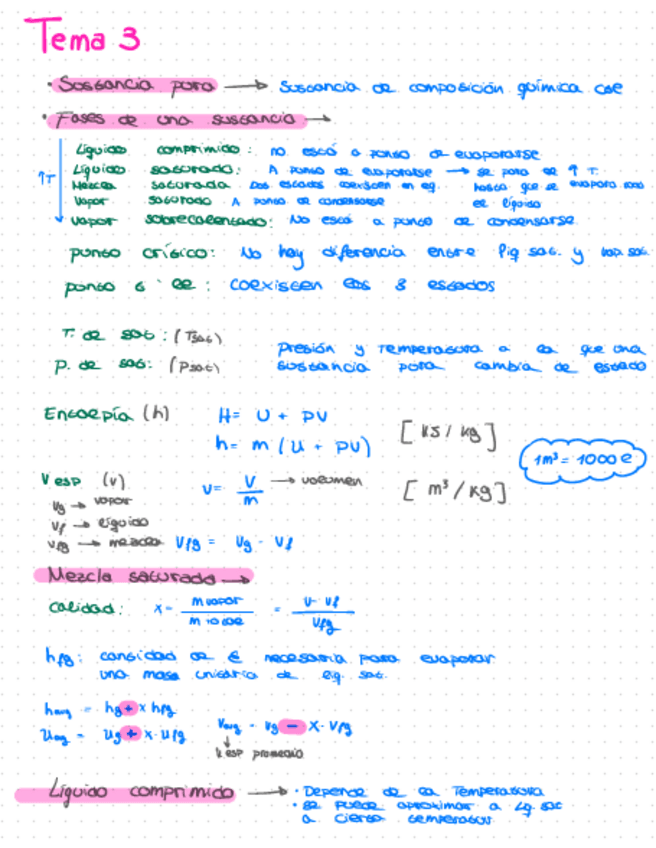 Tema 3
· Sustancia pura → Sustancia de composición química cte
· Fases de una sustancia →
↑T
Líquido comprimido: no está a punto de evaporarse
Líquido saturado: A punto de evaporarse → se para de ↑ T.
Mezcla saturada Dos estados coexisten en eq. hasta que se evapora todo
Vapor saturado A punto de condensarse el líquido
Vapor sobrecalentado: No está a punto de condensarse
punto crítico: No hay diferencia entre liq sat. y vap. sat.
punto t le: coexisten los 3 estados
T. de sat: (Tsat)
P. de sat: (Psat)
Presión y Temperatura a la que una
sustancia pura cambia de estado
Entalpía (h) H = U + PV
h = m (u + PV) [KJ/kg]
1m³ = 1000 l
V esp (v) v = V/m → volumen [m³/kg]
vg → vapor
vf → líquido
vfg → mezcla vfg = vg - vf
Mezcla saturada →
calidad: x = m vapor / m total = v - vf / vfg
hfg: cantidad de E necesaria para evaporar
una masa unitaria de liq. sat.
havg = hg + x hfg
uavg = ug + x · ufg vavg = vg - x · vfg
↓
v esp promedio
Líquido comprimido → · Depende de la Temperatura
· se puede aproximar a Lq. sat
a cierta temperatur